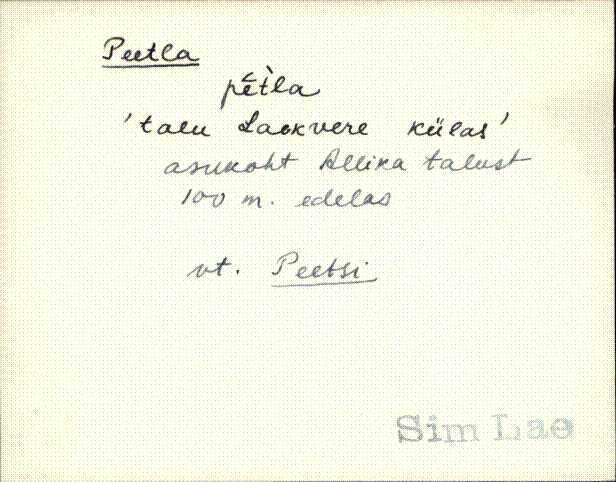 Peetla
pētla
'talu Laekvere külas'
asukoht Allika talust
100 m. edelas
vt. Peetsi
Sim Lae